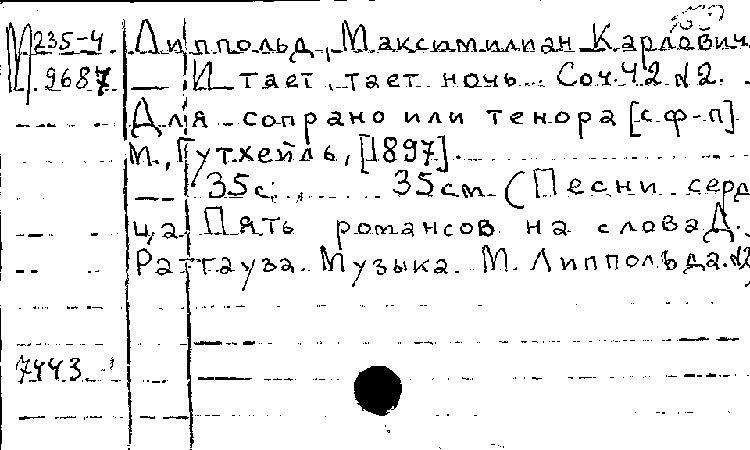 М 235-4 Липпольд, Максимилиан Карлович
9687 И тает, тает ночь. Соч. 42 №2.
Для сопрано или тенора [с ф-п]
М., Гутхейль, [1897].
35с., 35см (Песни серд
ца Пять романсов на слова Д.
Раттауза. Музыка. М. Липпольда. №2
7443